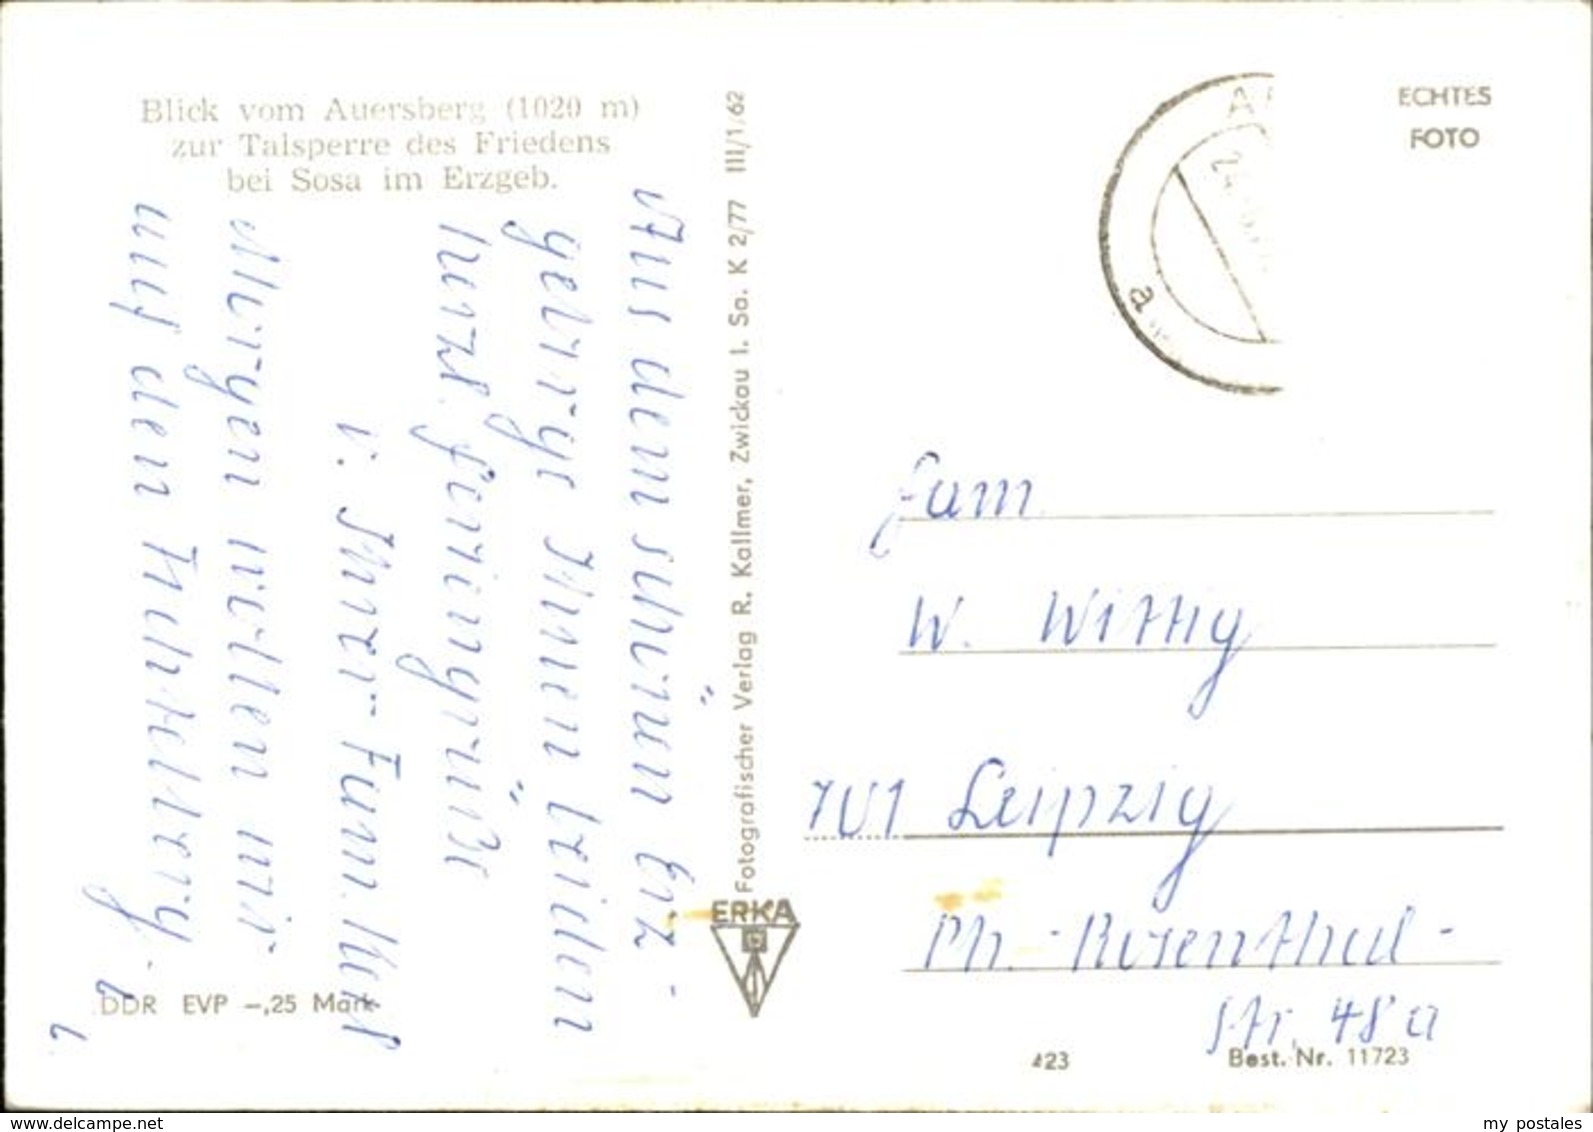 Blick vom Auersberg (1020 m)
zur Talsperre des Friedens
bei Sosa im Erzgeb.
Aus dem schönen Erz-
gebirge Ihnen beiden
herzl. Feriengrüße
v. Ihrer Fam.
Morgen wollen wir
auf den Fichtelberg.
DDR EVP –,25 Mark
Fotografischer Verlag R. Kallmer, Zwickau i. Sa. K 2/77 III/1/62
ERKA
ECHTES
FOTO
a
Fam
W. Wittig
701 Leipzig
Ph.-Rosenthal-
Str. 48 a
423
Best. Nr. 11723
www.delcampe.net
my postales